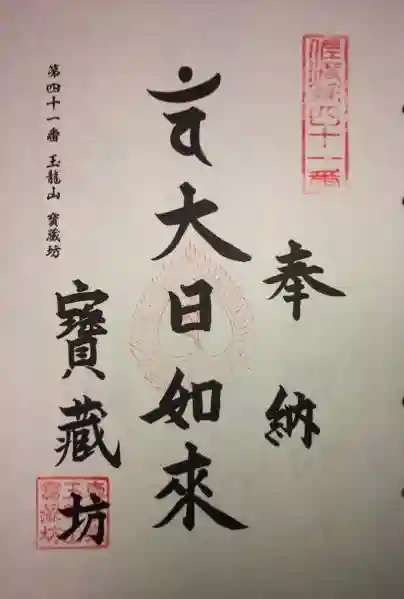 第四十一番
奉納
大日如來
寶藏坊
第四十一番 玉龍山 寶藏坊